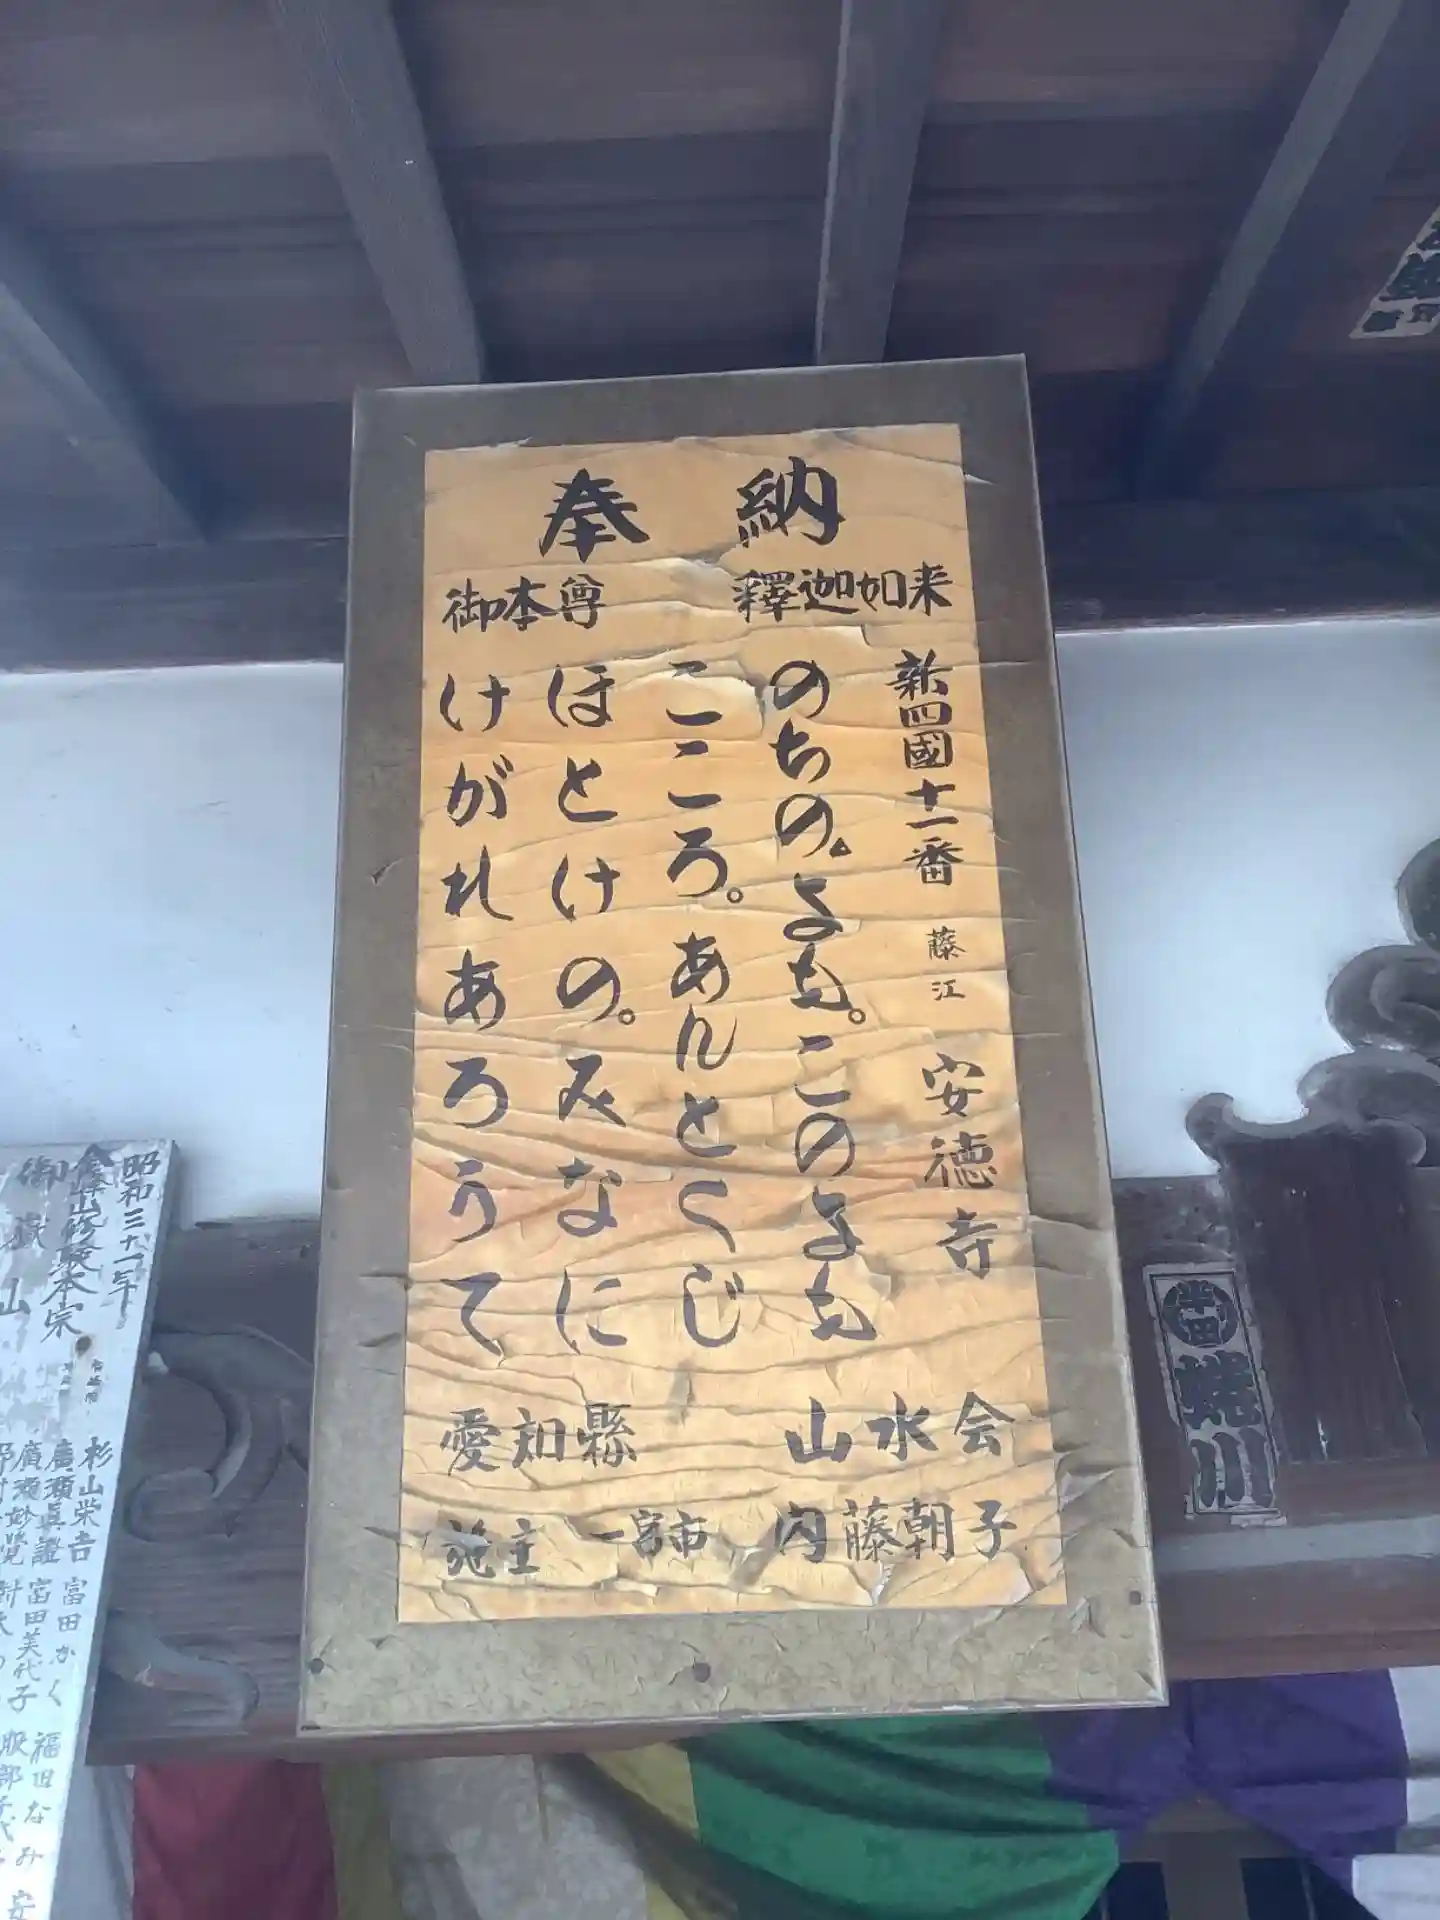 奉納
御本尊 釋迦如来
新四國十一番 藤江 安徳寺
のちの。よも。このよも
こころ。あんとくじ
ほとけの。みなに
けがれあろうて
愛知縣 山水会
施主 一宮市 内藤朝子
半田
昭和三十一年
修験本宗
御嶽山
杉山栄吉 富田かく
廣瀬眞證 富田美代子 福田なみ
廣瀬妙覚
服部
安